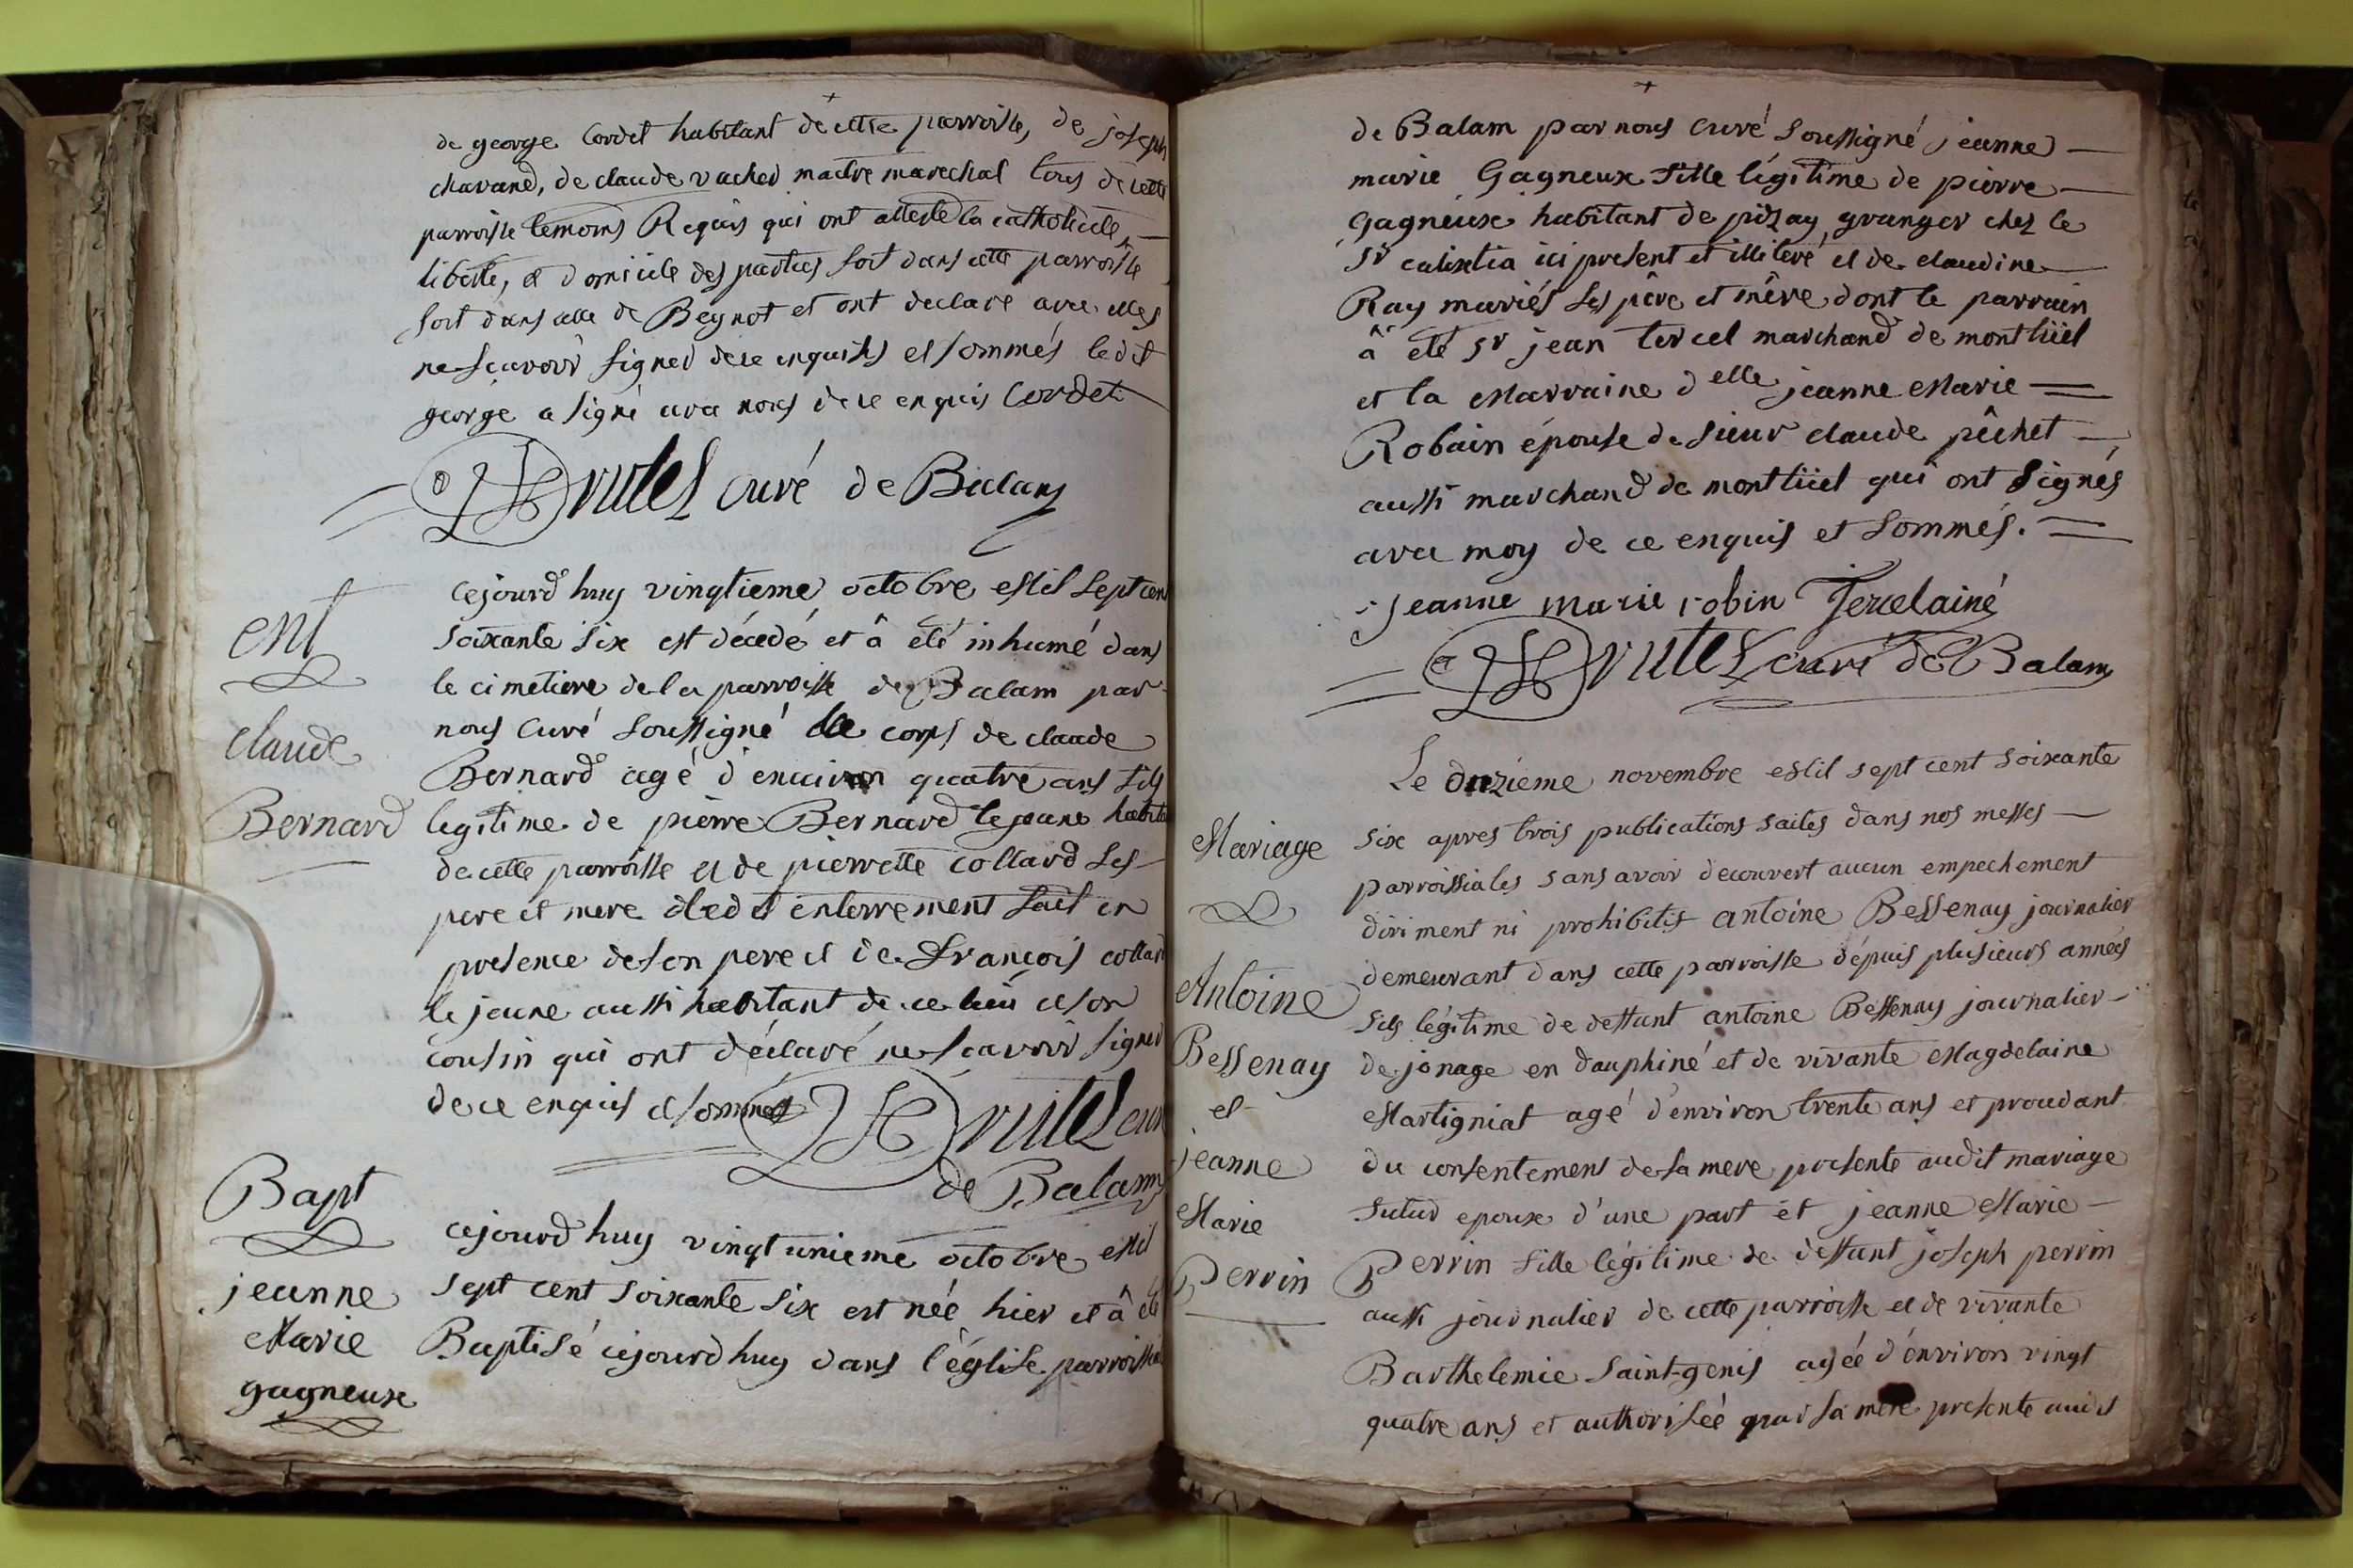 de george Cordet habitant de cette parroisse, de joseph
chavand, de claude vacher maitre marechal tous de cette
parroisse temoins Requis qui ont attesté la catholicité,
liberté, et domicile des parties soit dans cette parroisse
soit dans celle de Beynot et ont declaré avec elles
ne sçavoir signer de ce enquis et sommés ledit
george a signé avec nous de ce enquis Cordet
curé de Balan
ent
claude
Bernard
cejourd'huy vingtieme octobre mil sept cent
soixante six est décedé et â été inhumé dans
le cimetiere de la parroisse de Balam par
nous Curé soussigné le corps de claude
Bernard agé d'enuiron quatre ans fils
legitime de pierre Bernard le jeune habita
de cette parroisse et de pierrette collard ses
pere et mere ledit enterrement fait en
presence de son pere et de françois collard
le jeune aussi habitant de ce lieu et son
cousin qui ont déclaré ne sçavoir signer
de ce enquis et sommés
de Balam
Bapt
jeanne
Marie
gagneux
cejourd'huy vingt unieme octobre mil
sept cent soixante six est née hier et â été
Baptisé cejourd'huy dans l'église parroissia
de Balam par nous Curé soussigné jeanne
marie Gagneux fille légitime de pierre
Gagneux habitant de pizay granger chez le
Sr ici present et illiteré et de claudine
Ray mariés ses père et mère dont le parrain
â été Sr jean tercel marchand de montlüel
et la Marraine delle jeanne Marie
Robain épouse de sieur claude pêchet
aussi marchand de montlüel qui ont signés
avec moy de ce enquis et sommés.
jeanne marie robin Tercelainé
curé de Balam
Mariage
Antoine
Bessenay
et
jeanne
Marie
Perrin
Le novembre mil sept cent soixante
six apres trois publications faites dans nos messes
parroissiales sans avoir decouvert aucun empechement
diriment ni prohibitif antoine Bessenay journalier
demeurant dans cette parroisse dépuis plusieurs années
fils légitime de deffunt antoine Bessenay journalier
de jonage en dauphiné et de vivante Magdelaine
Martigniat agé d'environ trente ans et procedant
du consentement de sa mere presente audit mariage
futur epoux d'une part et jeanne Marie
Perrin fille légitime de deffunt joseph perrin
aussi journalier de cette parroisse et de vivante
Barthelemie Saint-genis agée d'énviron vingt
quatre ans et authorisée par sa mere presente audit